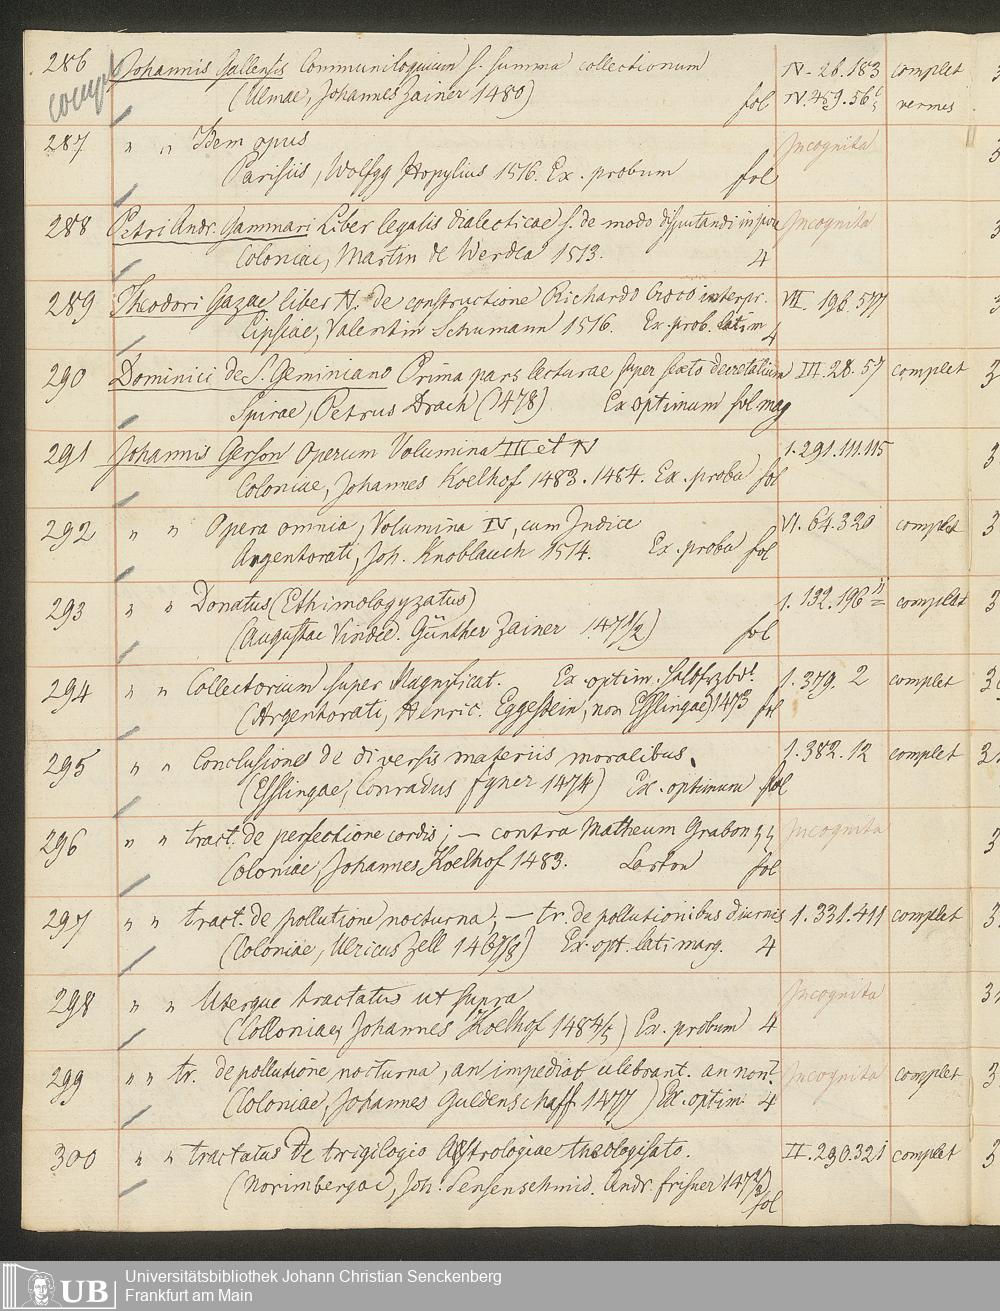 286 Johannis Gallensis Communiloquium s. summa collectionum IV. 26. 183 complet
(Ulmae, Johannes Zainer 1480) fol vermes
287 " " Idem opus Incognita
Parisiis, Wolfgg Hopylius 1516. Ex. probum fol
288 Petri Andr. Gammari Liber legalis dialecticae s. de modo disputandi in jure Incognita
Coloniae, Martin de Werdea 1513. 4
289 Theodori Gazae liber IV. de constructione Richardo Croco interpr. VII. 196. 577
Lipsiae, Valentin Schumann 1516. Ex. prob. latim 4
290 Dominici de S. Geminiano Prima pars lecturae super sexto decretalium III. 28. 57 complet
Spirae, Petrus Drach (1478) Ex optimum fol mag
291 Johannis Gerson Operum Volumina III et IV 1. 291. 111. 115
Coloniae, Johannes Koelhof 1483. 1484. Ex. probu fol
292 " " Opera omnia, Volumina IV, cum Indice VI. 64. 320 complet
Argentorati, Joh. Knoblauch 1514. Ex. probu fol
293 " " Donatus (Ethimologyzatus) 1. 132. 196 complet
(Augustae Vindel. Günther Zainer 1471/2) fol
294 " " Collectorium super Magnificat. Ex. optim. 1. 379. 2 complet
(Argentorati, Henric. Eggestein, non Esslingae) 1473 fol
295 " " Conclusiones de diversis materiis moralibus. 1. 382. 12 complet
(Esslingae, Conradus fyner 1474) Ex. optimum fol
296 " " tract. de perfectione cordis; — contra Matheum Grabon Incognita
Coloniae, Johannes Koelhof 1483. fol
297 " " tract. de pollutione nocturna; — tr. de pollutionibus diurnis 1. 331. 411 complet
(Coloniae, Ulricus Zell 1467/8) Ex. opt. lati marg. 4
298 " " Uterque tractatus ut supra Incognita
(Colloniae, Johannes Koelhof 1484/5) Ex. probum 4
299 " " tr. de pollutione nocturna, an impediat celebrant. an non? Incognita complet
(Coloniae, Johannes Guldenschaff 1477) Ex. optim. 4
300 " " tractatus De trigilogio Astrologiae theologisato. II. 290. 321 complet
(Norimbergae, Joh. Sensenschmid. Andr. frisner 1472/) fol
UB Universitätsbibliothek Johann Christian Senckenberg
Frankfurt am Main